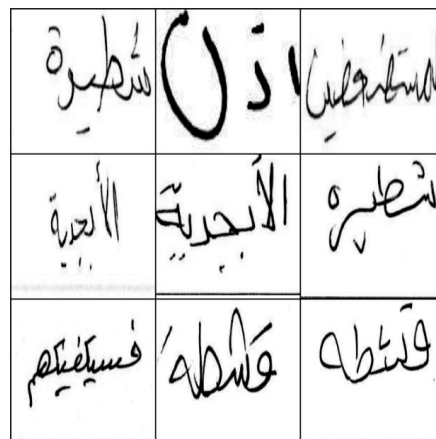 شطيرة اذن مستضعفين
الأبجدية الأبجدية شطيرة
فسيكفيكهم وتشطه